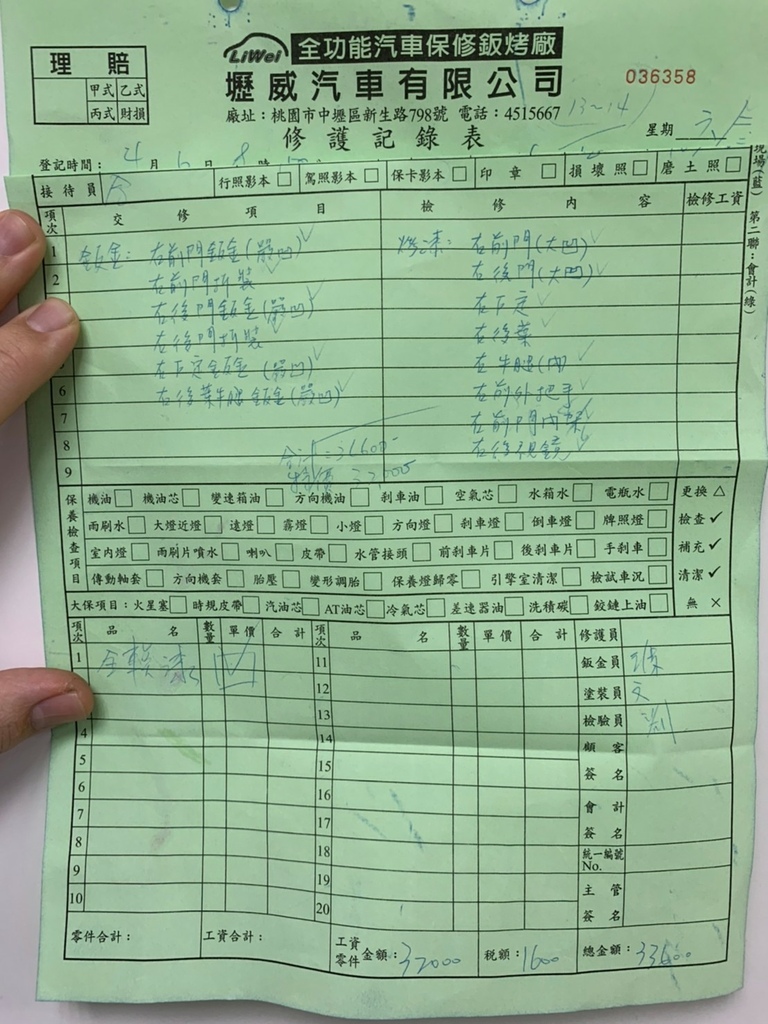 理 賠
甲式 乙式
丙式 財損
LiWei 全功能汽車保修鈑烤廠
壢威汽車有限公司
036358
廠址：桃園市中壢區新生路798號 電話：4515667
13~14
修護記錄表
星期 六
登記時間： 4 月 6 日 8 時
接待員 行照影本 □ 駕照影本 □ 保卡影本 □ 印章 □ 損壞照 □ 磨土照 □
現場(藍) 第二聯：會計(綠)
項次 交修項目 檢修內容 檢修工資
1 鈑金： 右前門鈑金(嚴凹) ✓ 烤漆： 右前門(大凹) ✓
2 右前門拆裝 ✓ 右後門(大凹) ✓
右後門鈑金(嚴凹) ✓ 右下定 ✓
右後門拆裝 ✓ 右後葉 ✓
右下定鈑金(嚴凹) ✓ 右牛腿(內) ✓
6 右後葉牛腿鈑金(嚴凹) ✓ 右前外把手 ✓
7 右前門內 ✓
8 右後視鏡 ✓
9 特價 32,000
保養檢查項目
機油□ 機油芯□ 變速箱油□ 方向機油□ 剎車油□ 空氣芯□ 水箱水□ 電瓶水□ 更換△
雨刷水□ 大燈近燈□ 遠燈□ 霧燈□ 小燈□ 方向燈□ 剎車燈□ 倒車燈□ 牌照燈□ 檢查✓
室內燈□ 雨刷片噴水□ 喇叭□ 皮帶□ 水管接頭□ 前剎車片□ 後剎車片□ 手剎車□ 補充✓
傳動軸套□ 方向機套□ 胎壓□ 變形調胎□ 保養燈歸零□ 引擎室清潔□ 檢試車況□ 清潔✓
大保項目：火星塞□ 時規皮帶□ 汽油芯□ AT油芯□ 冷氣芯□ 差速器油□ 洗積碳□ 鉸鏈上油□ 無 ×
項次 品名 數量 單價 合計 項次 品名 數量 單價 合計 修護員
1 11 鈑金員
12 塗裝員 文
13 檢驗員
4 14 顧客
5 15 簽名
6 16
7 17 會計
8 18 簽名
統一編號
No.
9 19 主管
10 20 簽名
零件合計： 工資合計： 工資零件金額：32000 稅額：1600 總金額：33600